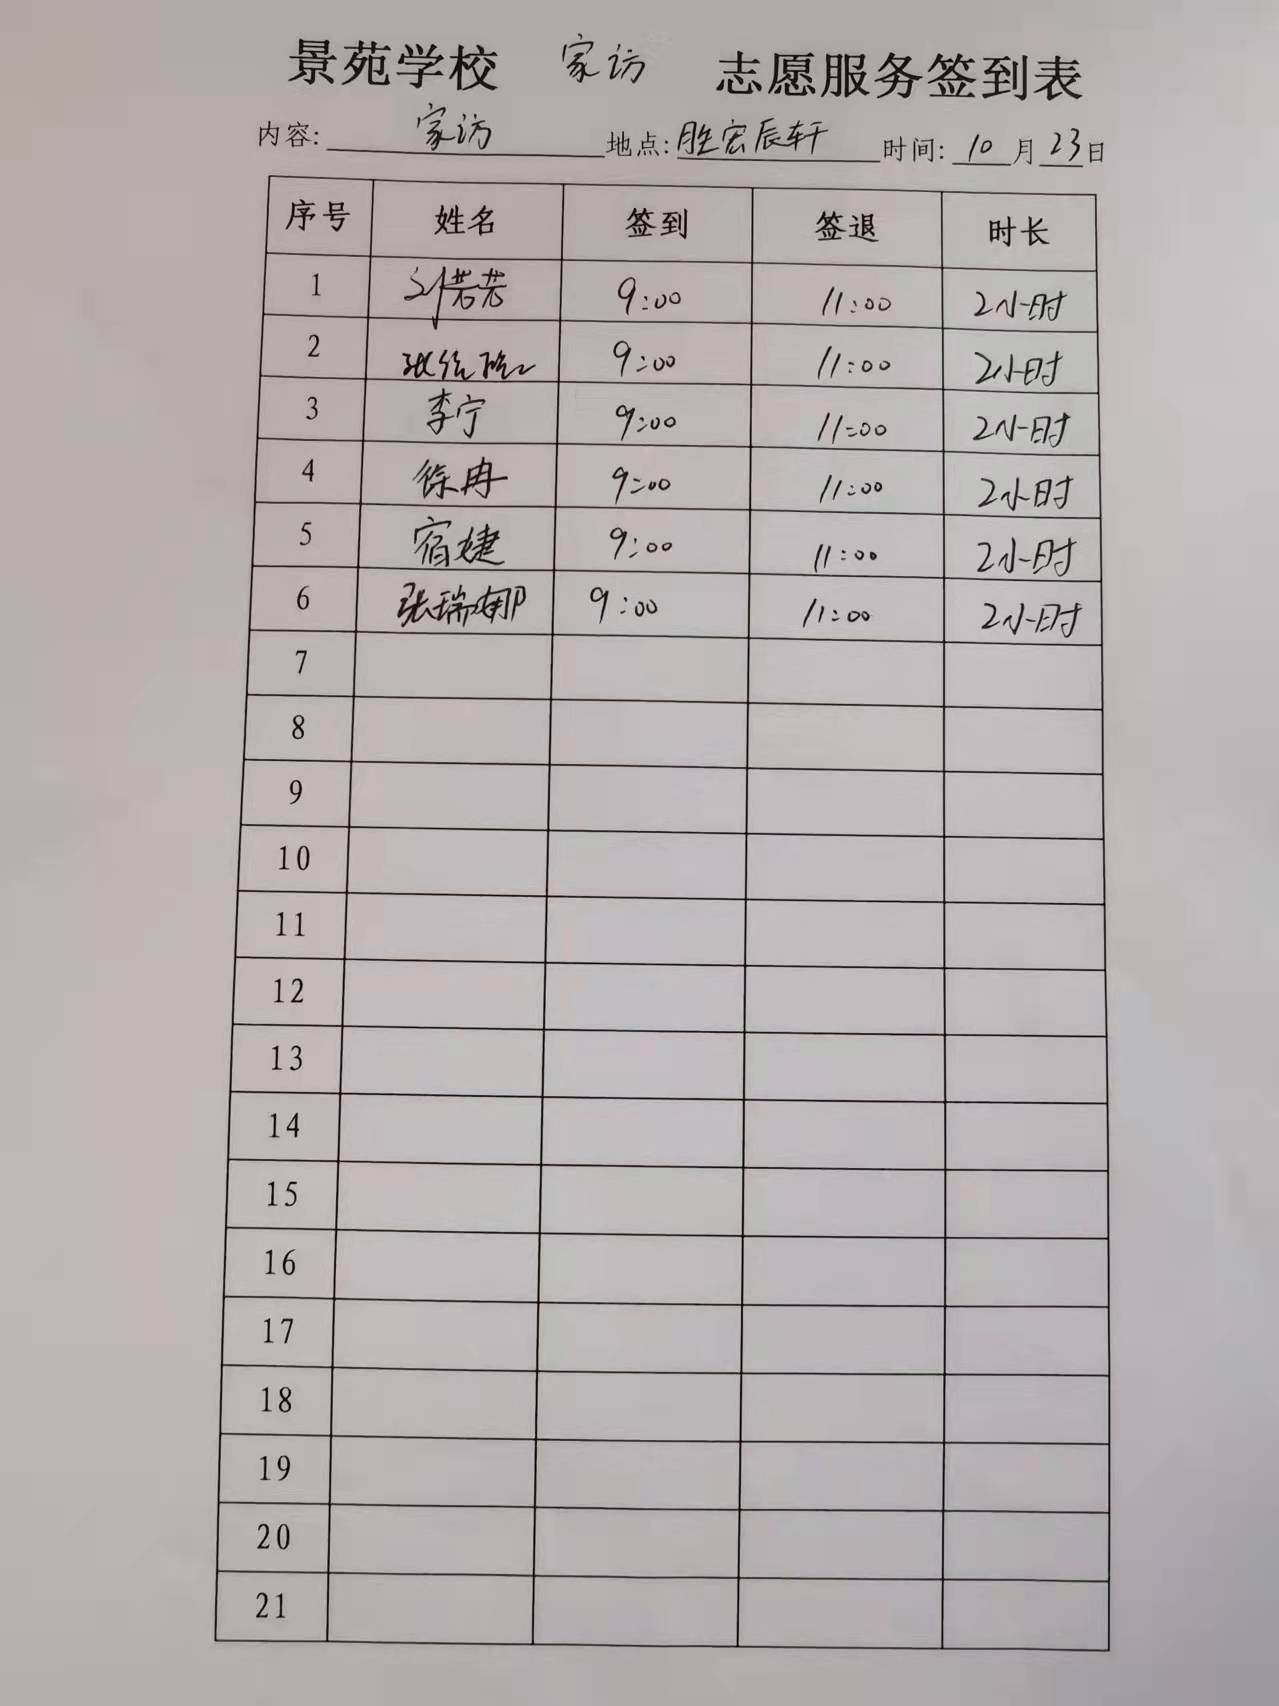 景苑学校 家访 志愿服务签到表
内容: 家访 地点: 胜宏辰轩 时间: 10月23日
序号 姓名 签到 签退 时长
1 刘若芸 9:00 11:00 2小时
2 张 9:00 11:00 2小时
3 李宁 9:00 11:00 2小时
4 徐冉 9:00 11:00 2小时
5 宿婕 9:00 11:00 2小时
6 张瑞娜 9:00 11:00 2小时
7
8
9
10
11
12
13
14
15
16
17
18
19
20
21